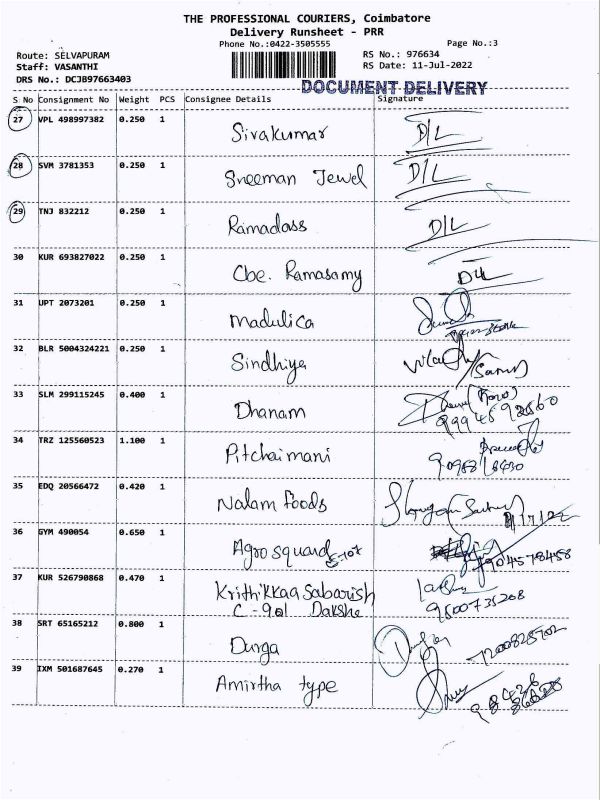 THE PROFESSIONAL COURIERS, Coimbatore
Delivery Runsheet - PRR
Phone No.:0422-3505555 Page No.:3
Route: SELVAPURAM RS No.: 976634
Staff: VASANTHI RS Date: 11-Jul-2022
DRS No.: DCJB97663403
DOCUMENT DELIVERY
S No Consignment No Weight PCS Consignee Details Signature
27 VPL 498997382 0.250 1 Sivakumar D/L
28 SVM 3781353 0.250 1 Sreeman Jewel D/L
29 TNJ 832212 0.250 1 Ramadass D/L
30 KUR 693827022 0.250 1 Cbe. Ramasamy D/L
31 UPT 2073201 0.250 1 Madulica
32 BLR 5004324221 0.250 1 Sindhiya
33 SLM 299115245 0.400 1 Dhanam
34 TRZ 125560523 1.100 1 Pitchaimani
35 EDQ 20566472 0.420 1 Nalam foods
36 GYM 490054 0.650 1 Agrosquard
37 KUR 526790868 0.470 1 Krithikkaa Sabarish
C-901 Daksha 9600735208
38 SRT 65165212 0.800 1 Durga
39 IXM 501687645 0.270 1 Amirtha type